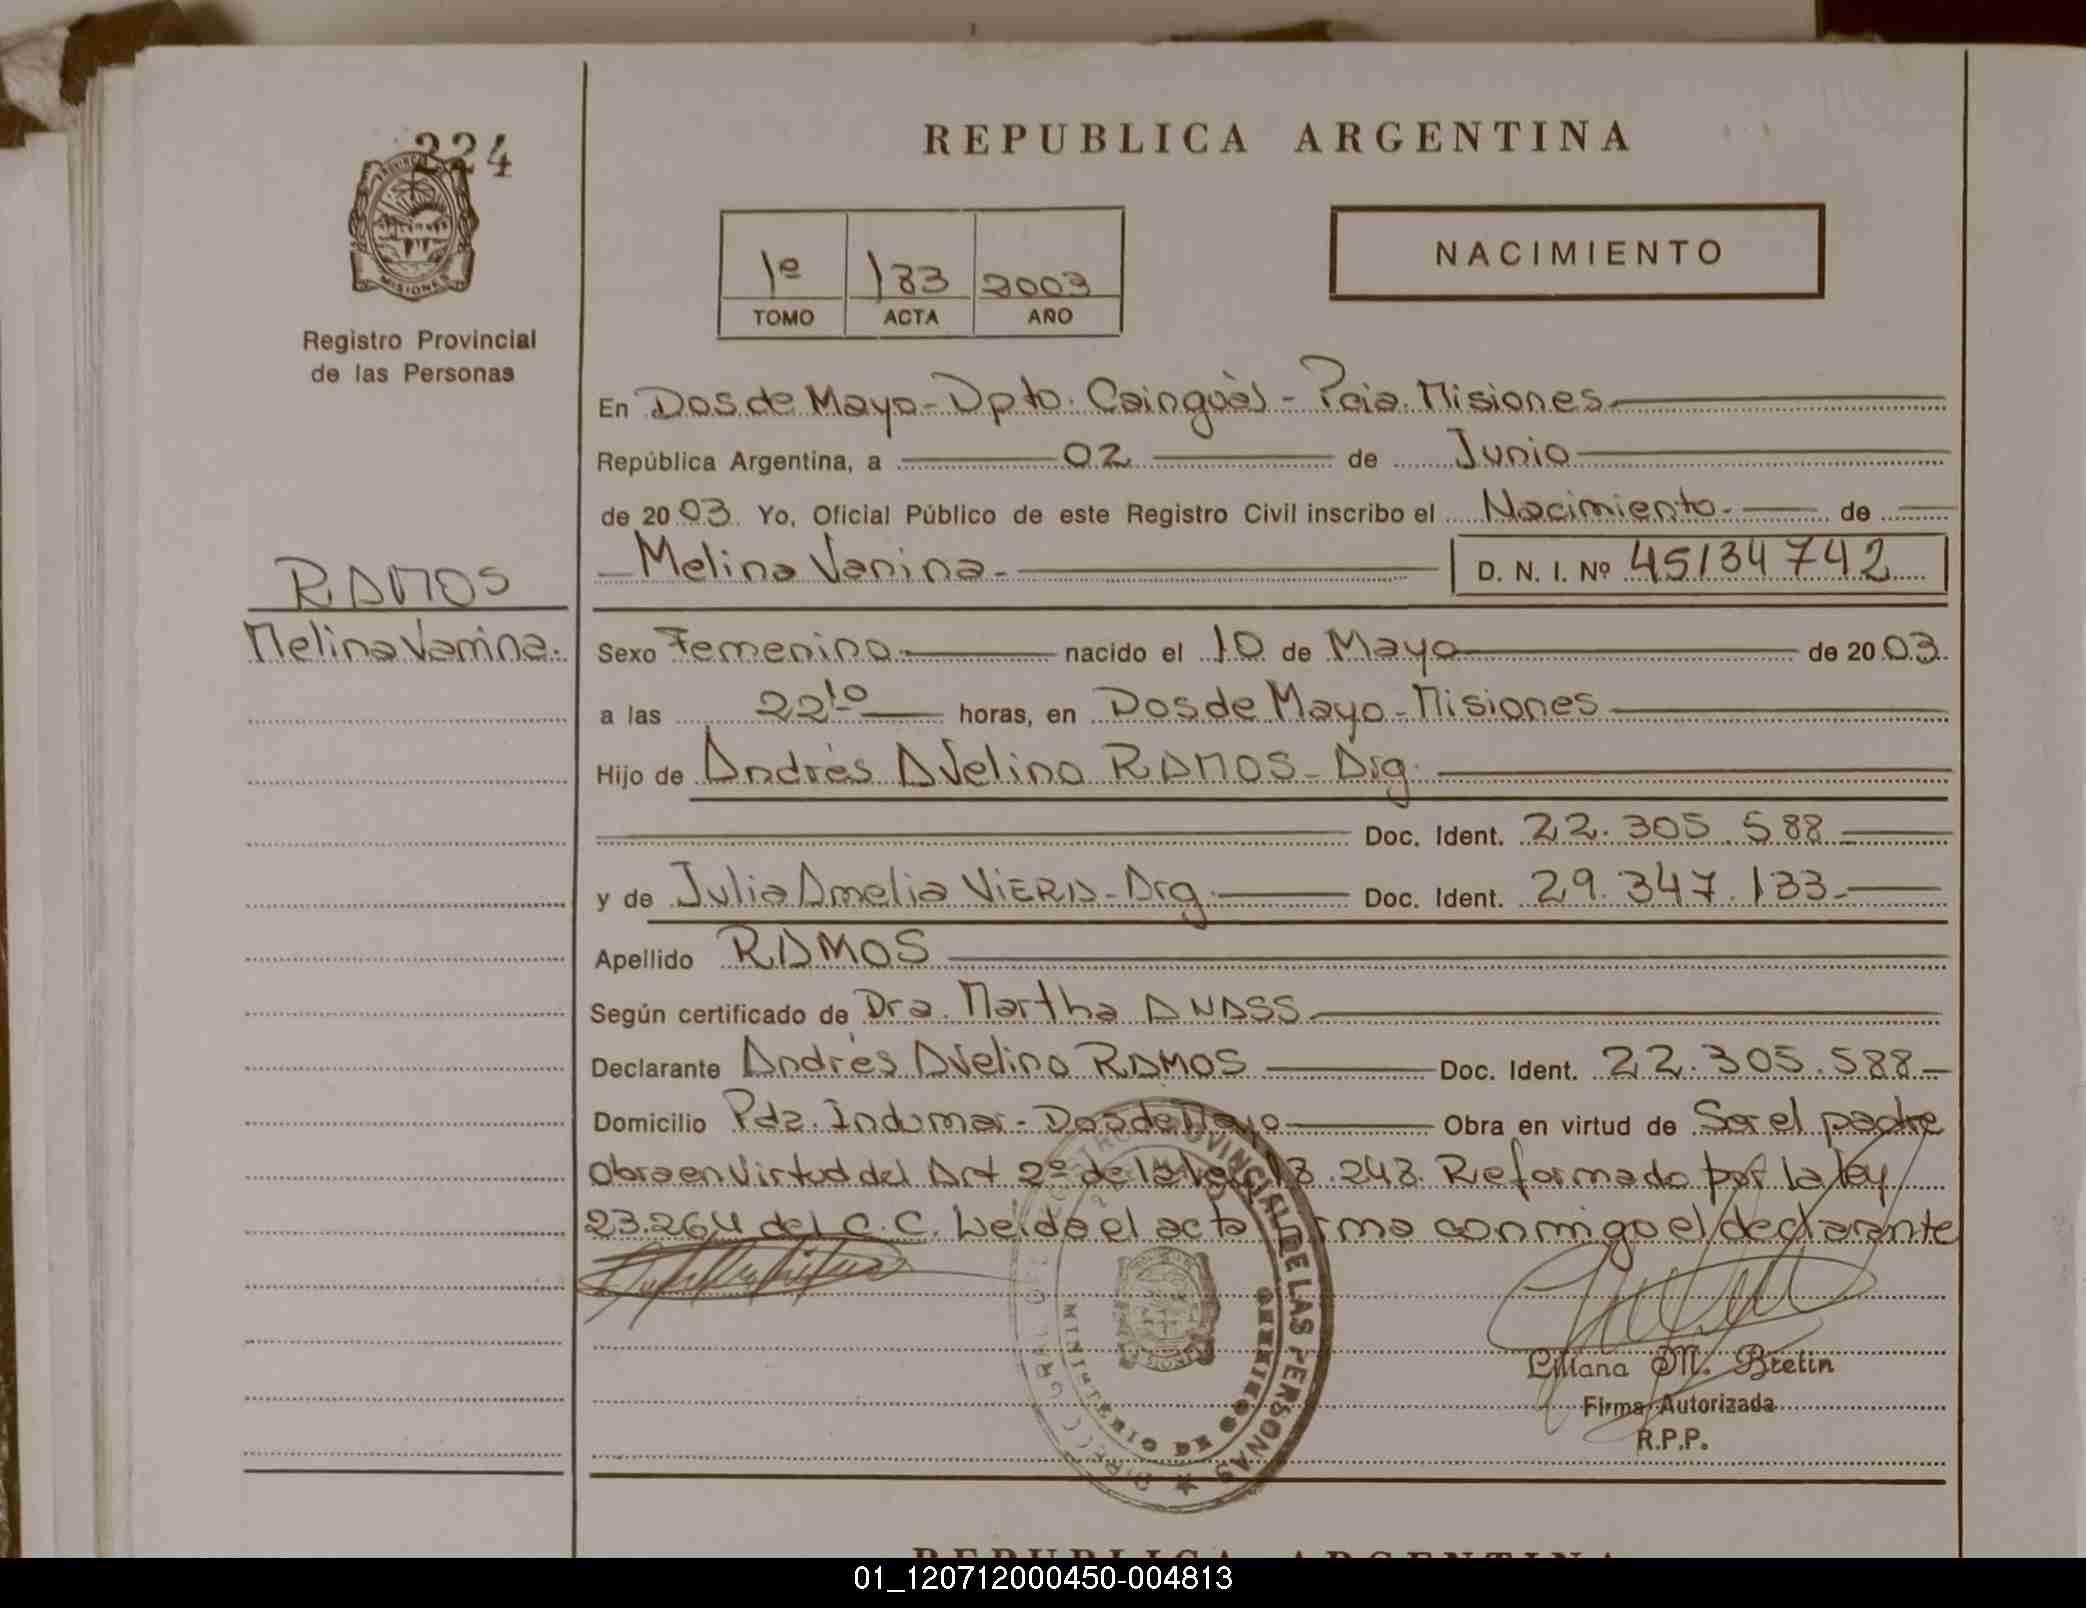 224
REPUBLICA ARGENTINA
NACIMIENTO
1º 133 2003
TOMO ACTA AÑO
MISIONES
Registro Provincial
de las Personas
En Dos de Mayo - Dpto. Cainguàs - Pcia. Misiones
República Argentina, a 02 de Junio
de 2003. Yo, Oficial Público de este Registro Civil inscribo el Nacimiento de
Melina Vanina - D. N. I. Nº 45134742
RAMOS
Melina Vanina.
Sexo Femenino nacido el 10 de Mayo de 2003.
a las 22¹⁰ horas, en Dos de Mayo - Misiones
Hijo de Andrès Avelino RAMOS - Arg.
Doc. Ident. 22.305.588
y de Julia Amelia VIERA - Arg. Doc. Ident. 29.347.133-
Apellido RAMOS
Según certificado de Dra. Martha ANASS
Declarante Andrès Avelino RAMOS Doc. Ident. 22.305.588-
Domicilio Pdz. Indumar - Dos de Mayo Obra en virtud de Ser el padre
Obra en Virtud del Art 2º de la ley 18.248. Reformado por la ley
23.264 del C.C. Leida el acta firma conmigo el declarante
REGISTRO PROVINCIAL DE LAS PERSONAS
MINISTERIO DE GOBIERNO
Liliana M. Bretin
Firma Autorizada
R.P.P.
REPUBLICA ARGENTINA
01_120712000450-004813